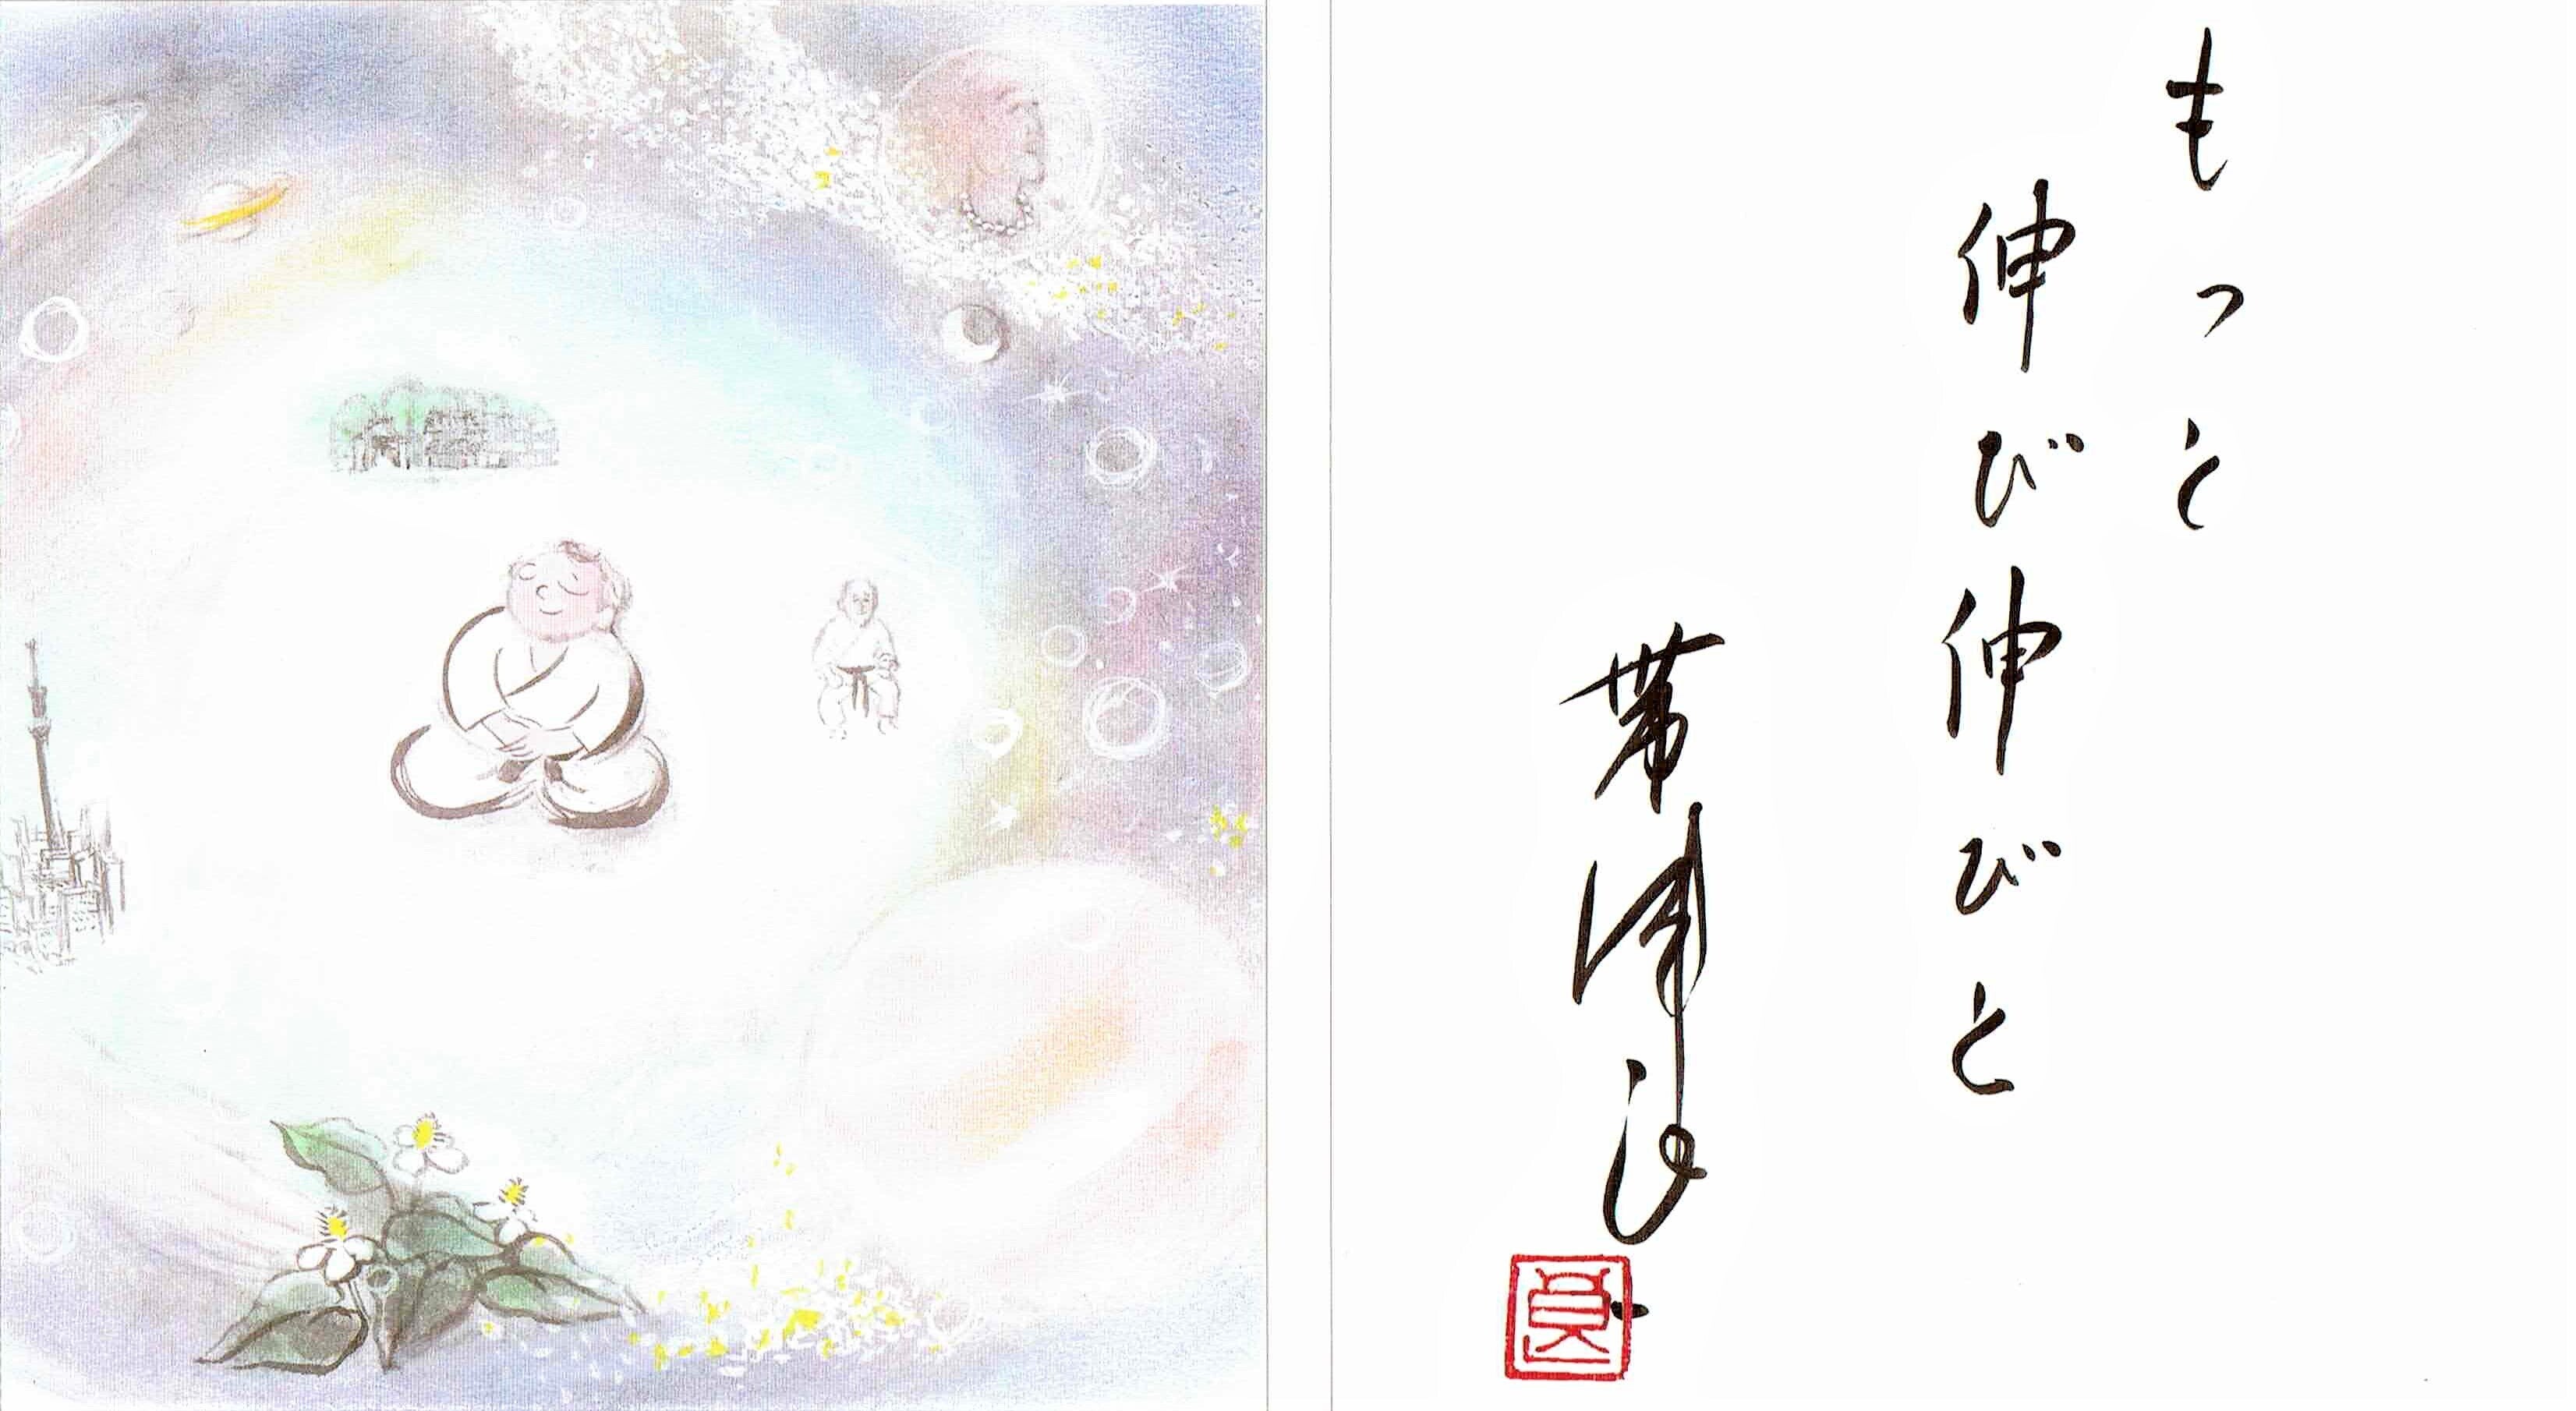 もっと
伸び伸びと
帯津